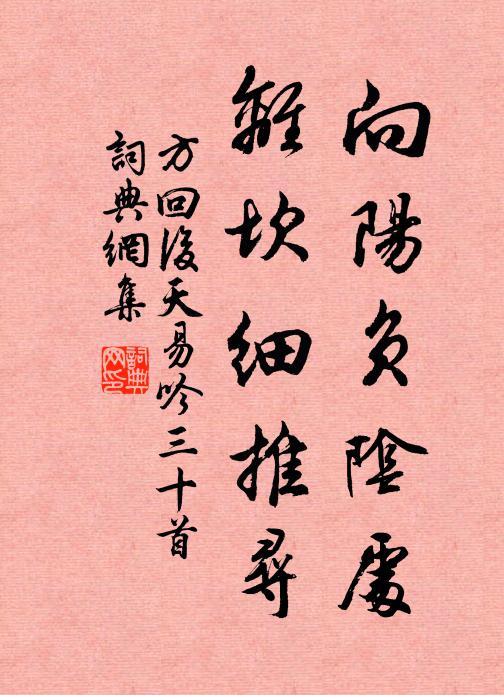 向陽負陰處
離坎細推尋
方回後天易吟三十首
詞典網集
詞典
网印